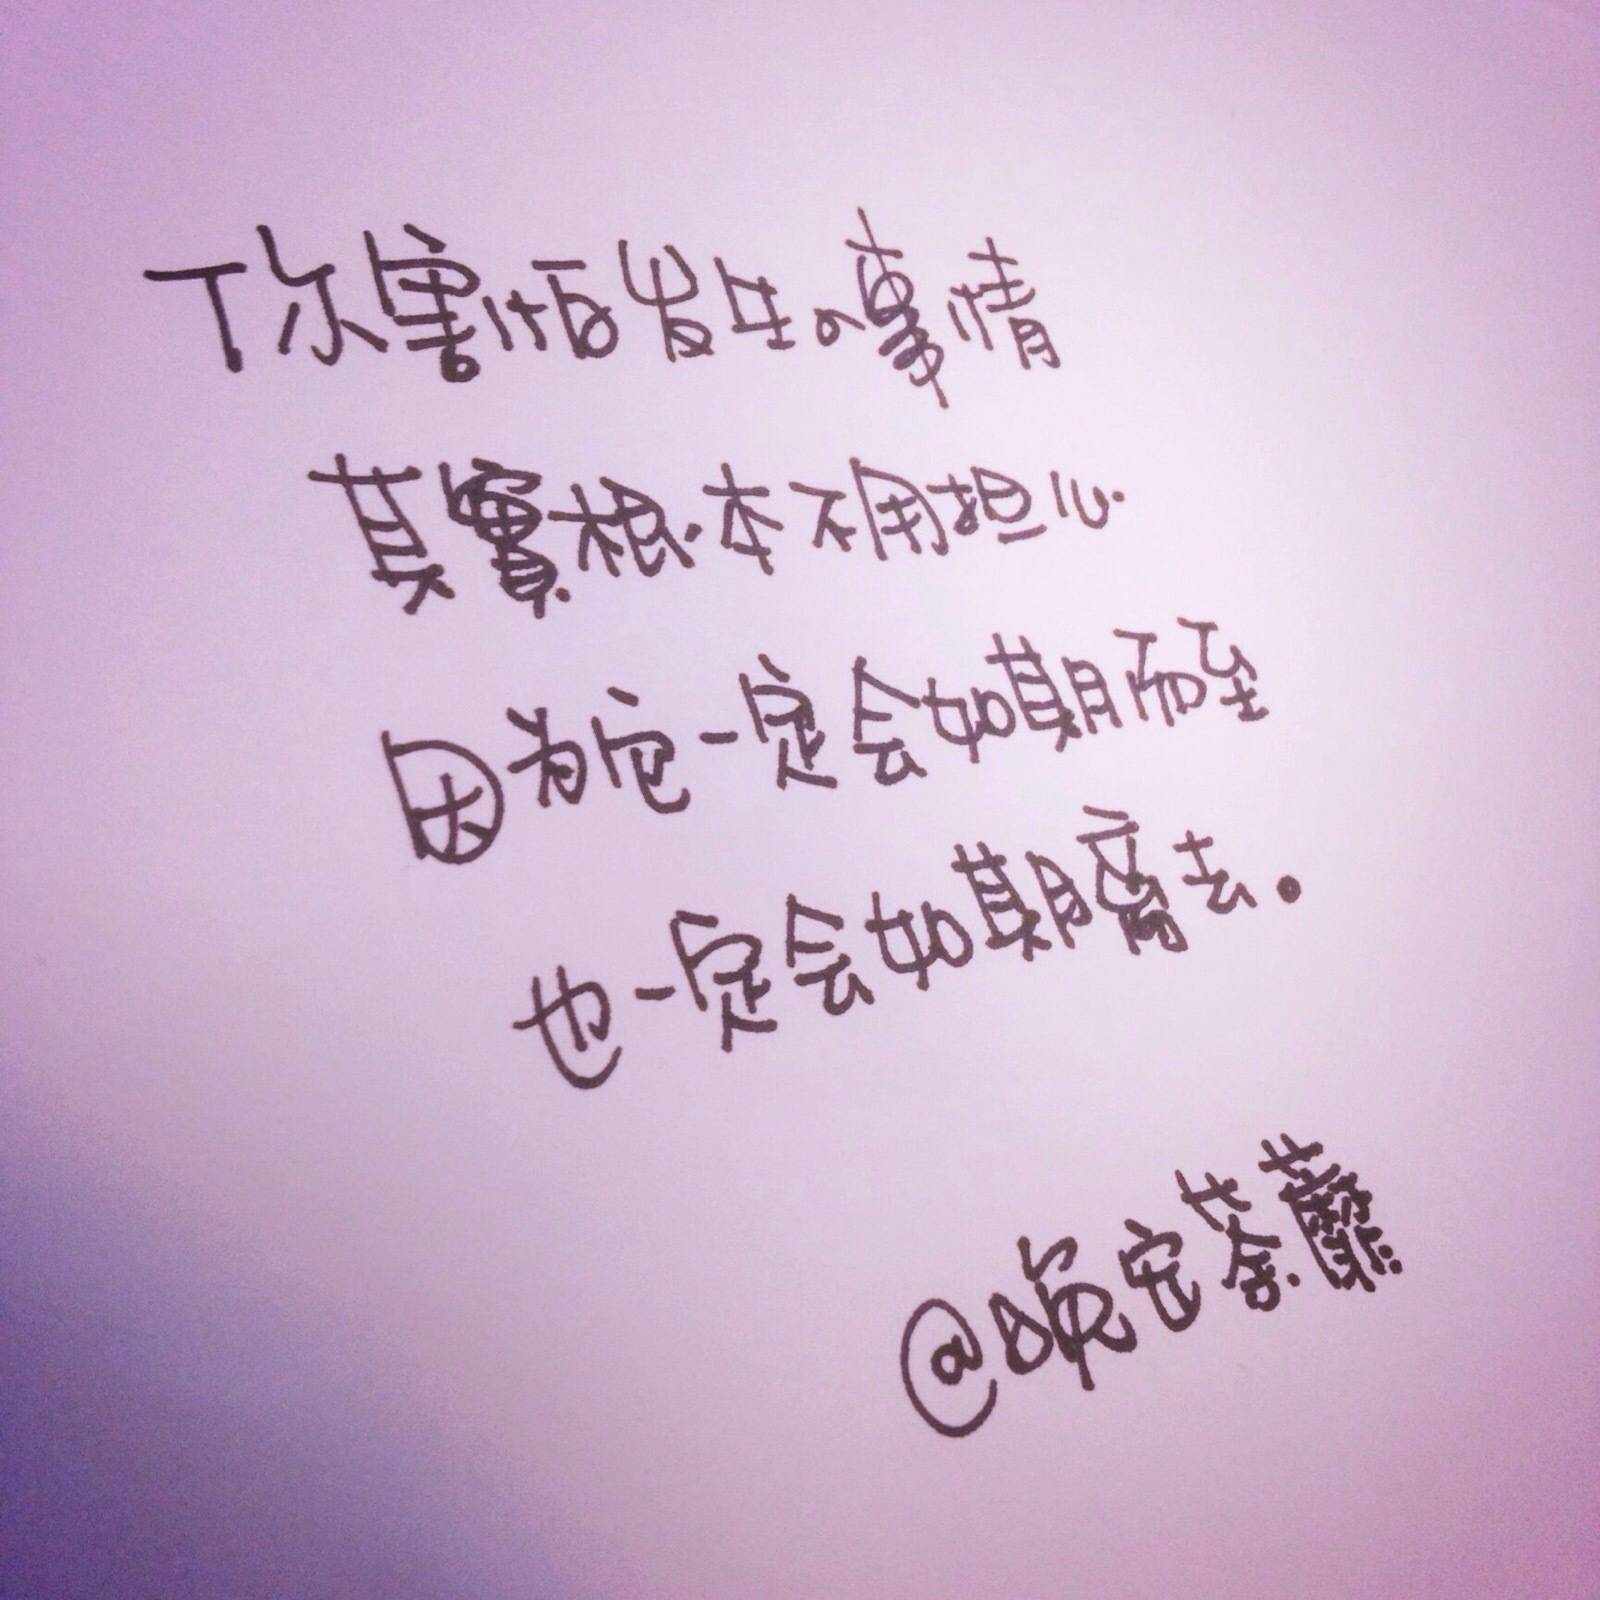 你害怕发生の事情
其實根本不用担心
因为它一定会如期而至
也一定会如期离去。
@晚安荼蘼